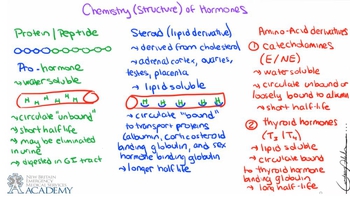 Chemistry (Structure) of Hormones
Protein/Peptide
Pro-hormone
→ water soluble
H H H H H H
→ circulate "unbound"
→ short half life
→ may be eliminated
in urine
→ digested in GI tract
Steroid (lipid derivative)
→ derived from cholesterol
→ adrenal cortex, ovaries,
testes, placenta
→ lipid soluble
→ circulate "bound"
to transport proteins
(albumin, corticosteroid
binding globulin, and sex
hormone binding globulin
→ longer half life
Amino-Acid derivatives
① catecholamines
(E/NE)
→ water soluble
→ circulate unbound or
loosely bound to albumin
→ short half-life
② thyroid hormones
(T₃ /T₄)
→ lipid soluble
→ circulate bound
to thyroid hormone
binding globulin
→ long half-life
NEW BRITAIN
EMERGENCY
MEDICAL SERVICES
ACADEMY